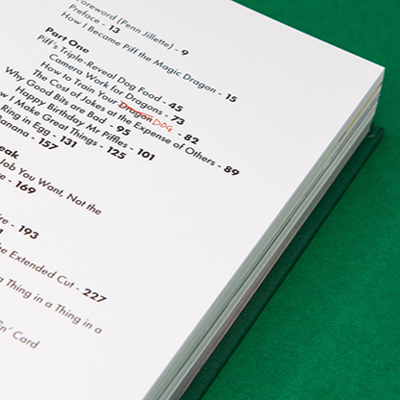 Foreword (Penn Jillette) - 9
Preface - 13
How I Became Piff the Magic Dragon - 15
Part One
Piff's Triple-Reveal Dog Food - 45
Camera Work for Dragons - 73
How to Train Your Dragon DOG - 82
The Cost of Jokes at the Expense of Others - 89
Why Good Bits are Bad - 95
Happy Birthday Mr Piffles - 101
I Make Great Things - 125
Ring in Egg - 131
Banana - 157
eak
Job You Want, Not the
re - 169
ire - 193
he Extended Cut - 227
g a Thing in a Thing in a
in' Card